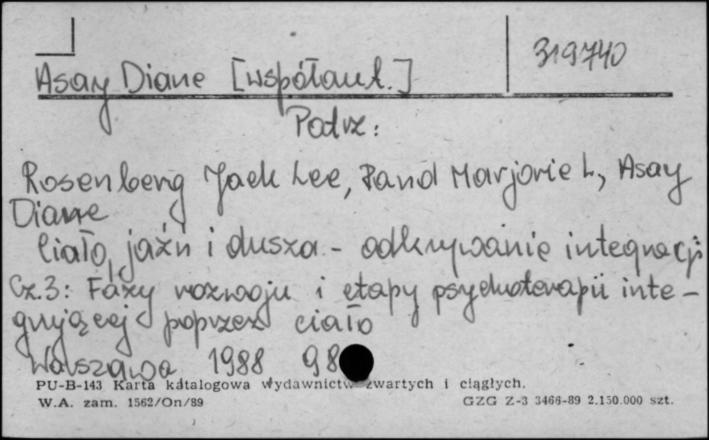 319740
Asay Diane [współaut.]
Patrz:
Rosenberg Jack Lee, Rand Marjorie L, Asay
Diane
Ciało, jaźń i dusza - odkrywanie integracji
Cz.3: Fazy rozwoju i etapy psychoterapii inte-
grującej poprzez ciało
Warszawa 1988 98
PU-B-143 Karta katalogowa wydawnictw zwartych i ciągłych.
W.A. zam. 1562/On/89 GZG Z-3 3466-89 2.150.000 szt.